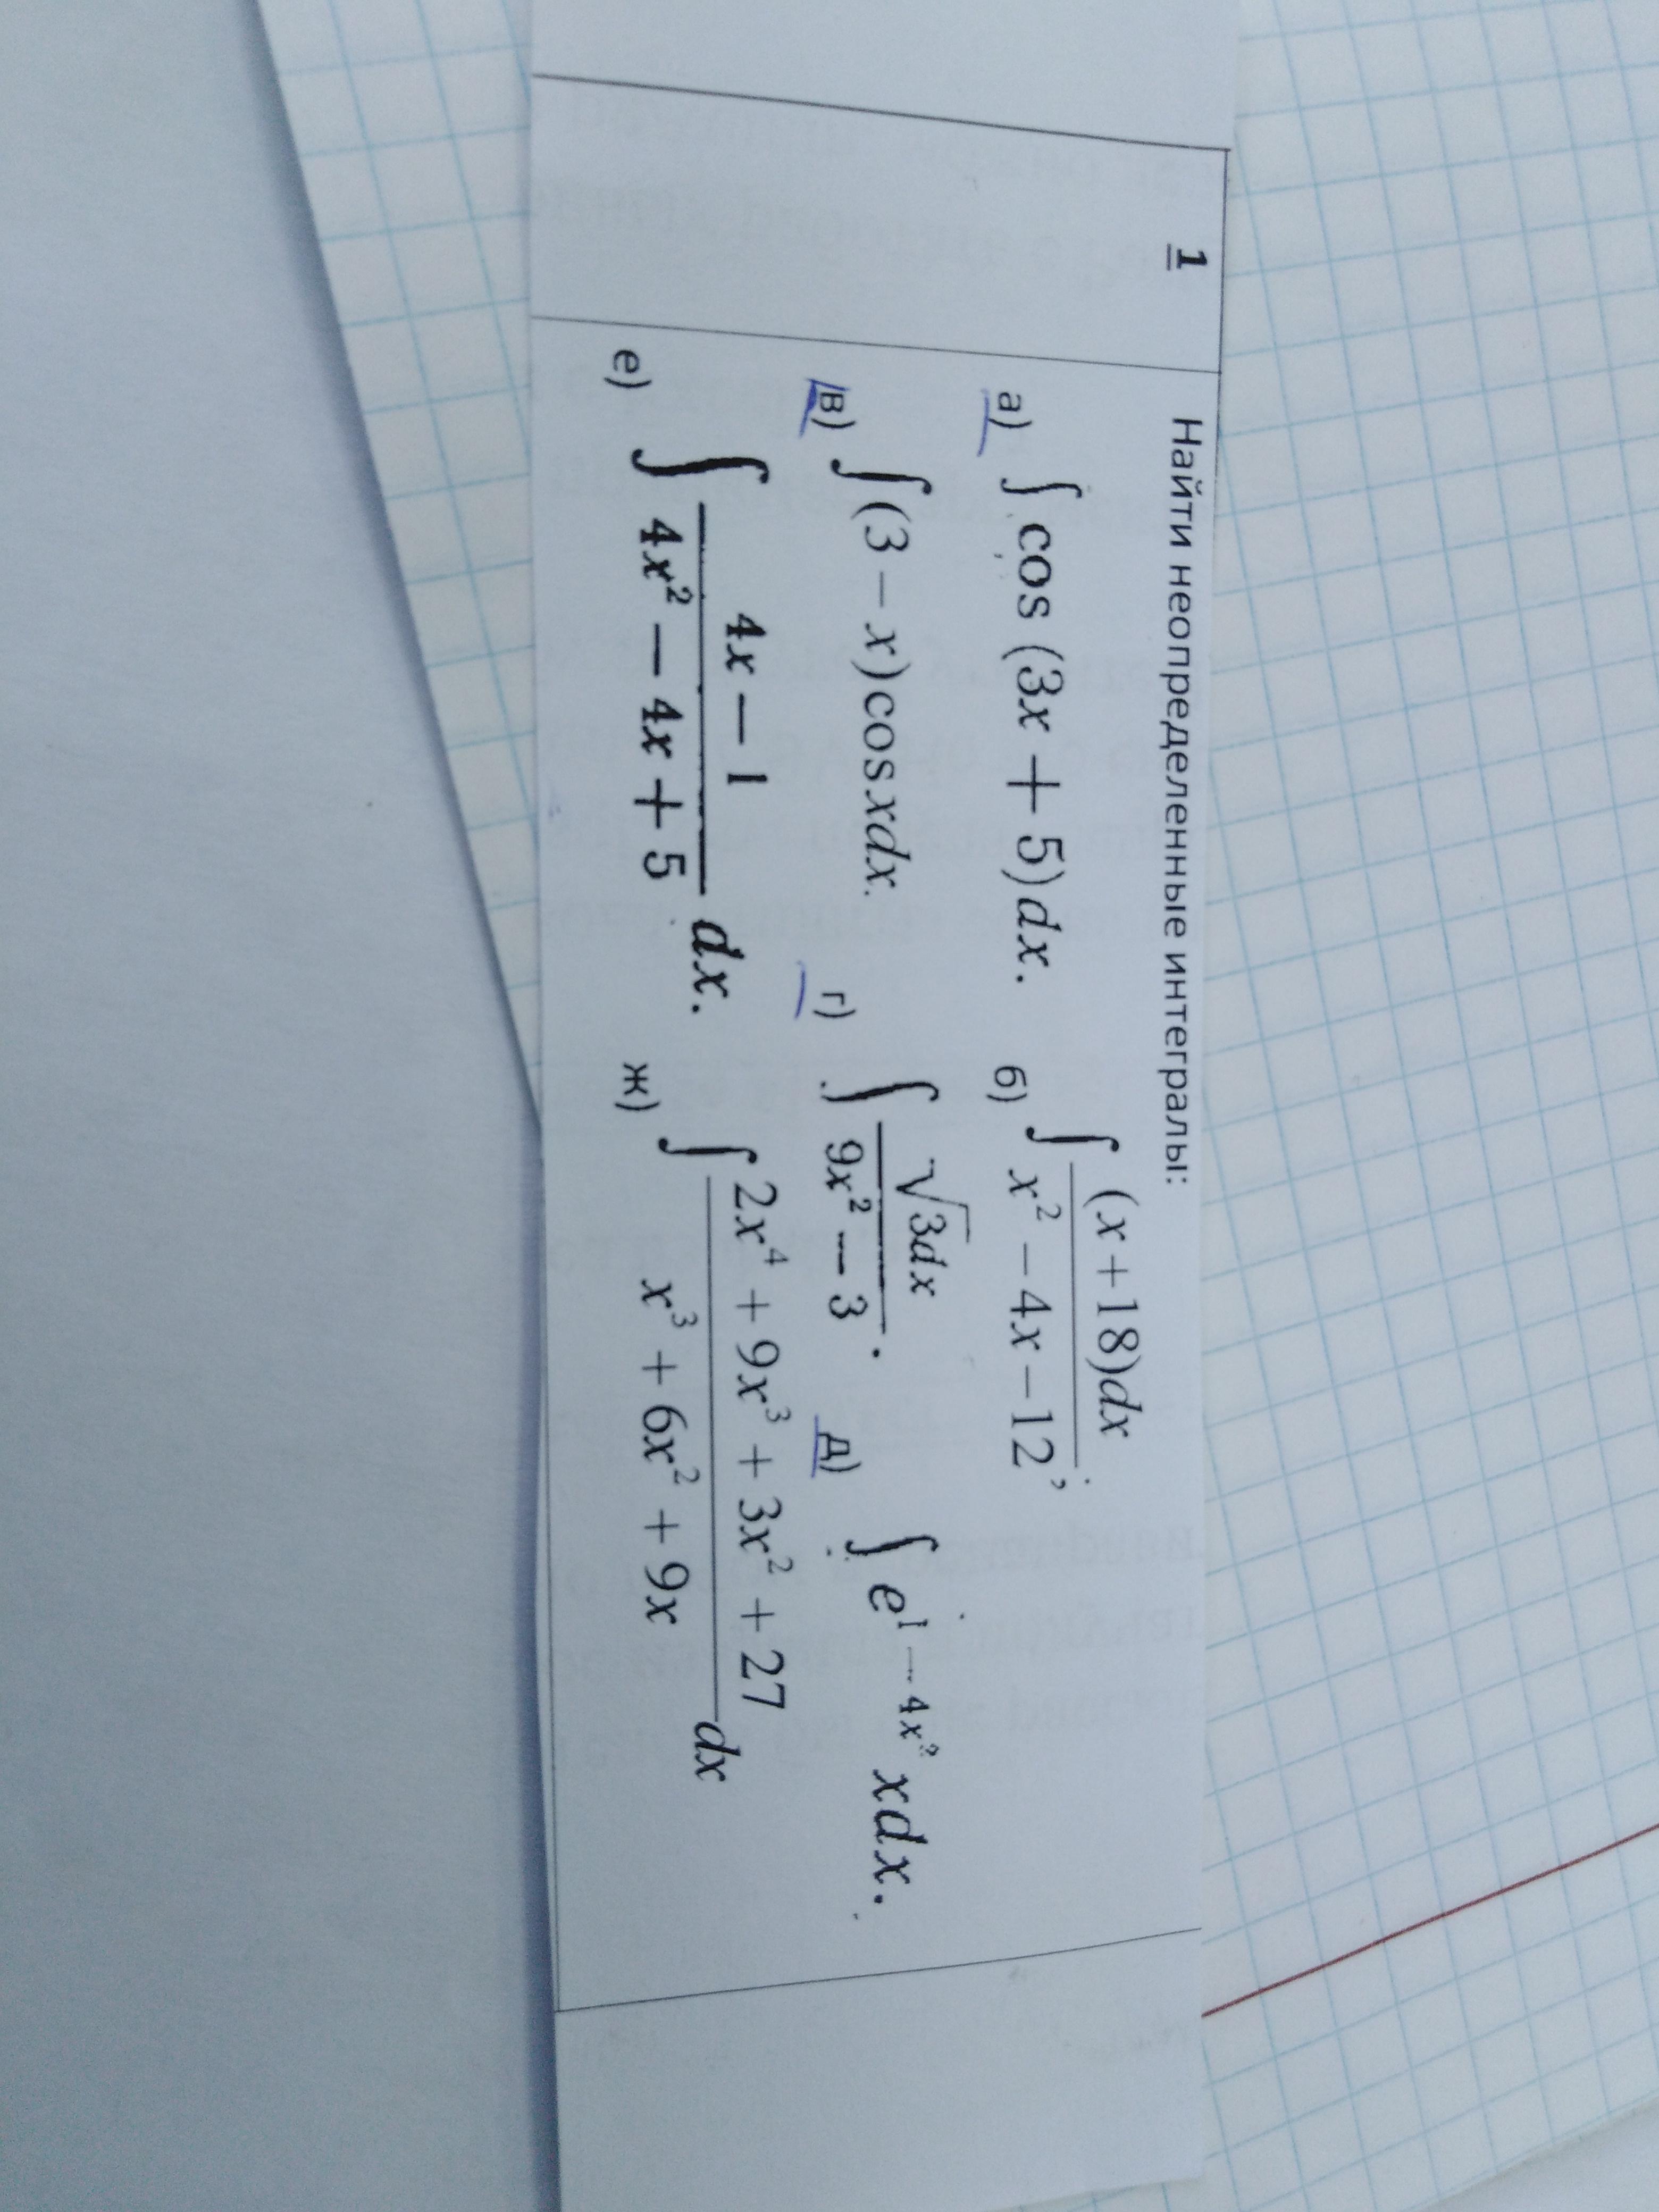 1
Найти неопределенные интегралы:
а) ∫ cos (3x + 5) dx. б) ∫ (x+18)dx / (x² − 4x − 12);
в) ∫(3 − x)cosxdx. г) ∫ √3dx / (9x² − 3). д) ∫ e^(1 − 4x²) xdx.
е) ∫ (4x − 1) / (4x² − 4x + 5) dx. ж) ∫ (2x⁴ + 9x³ + 3x² + 27) / (x³ + 6x² + 9x) dx